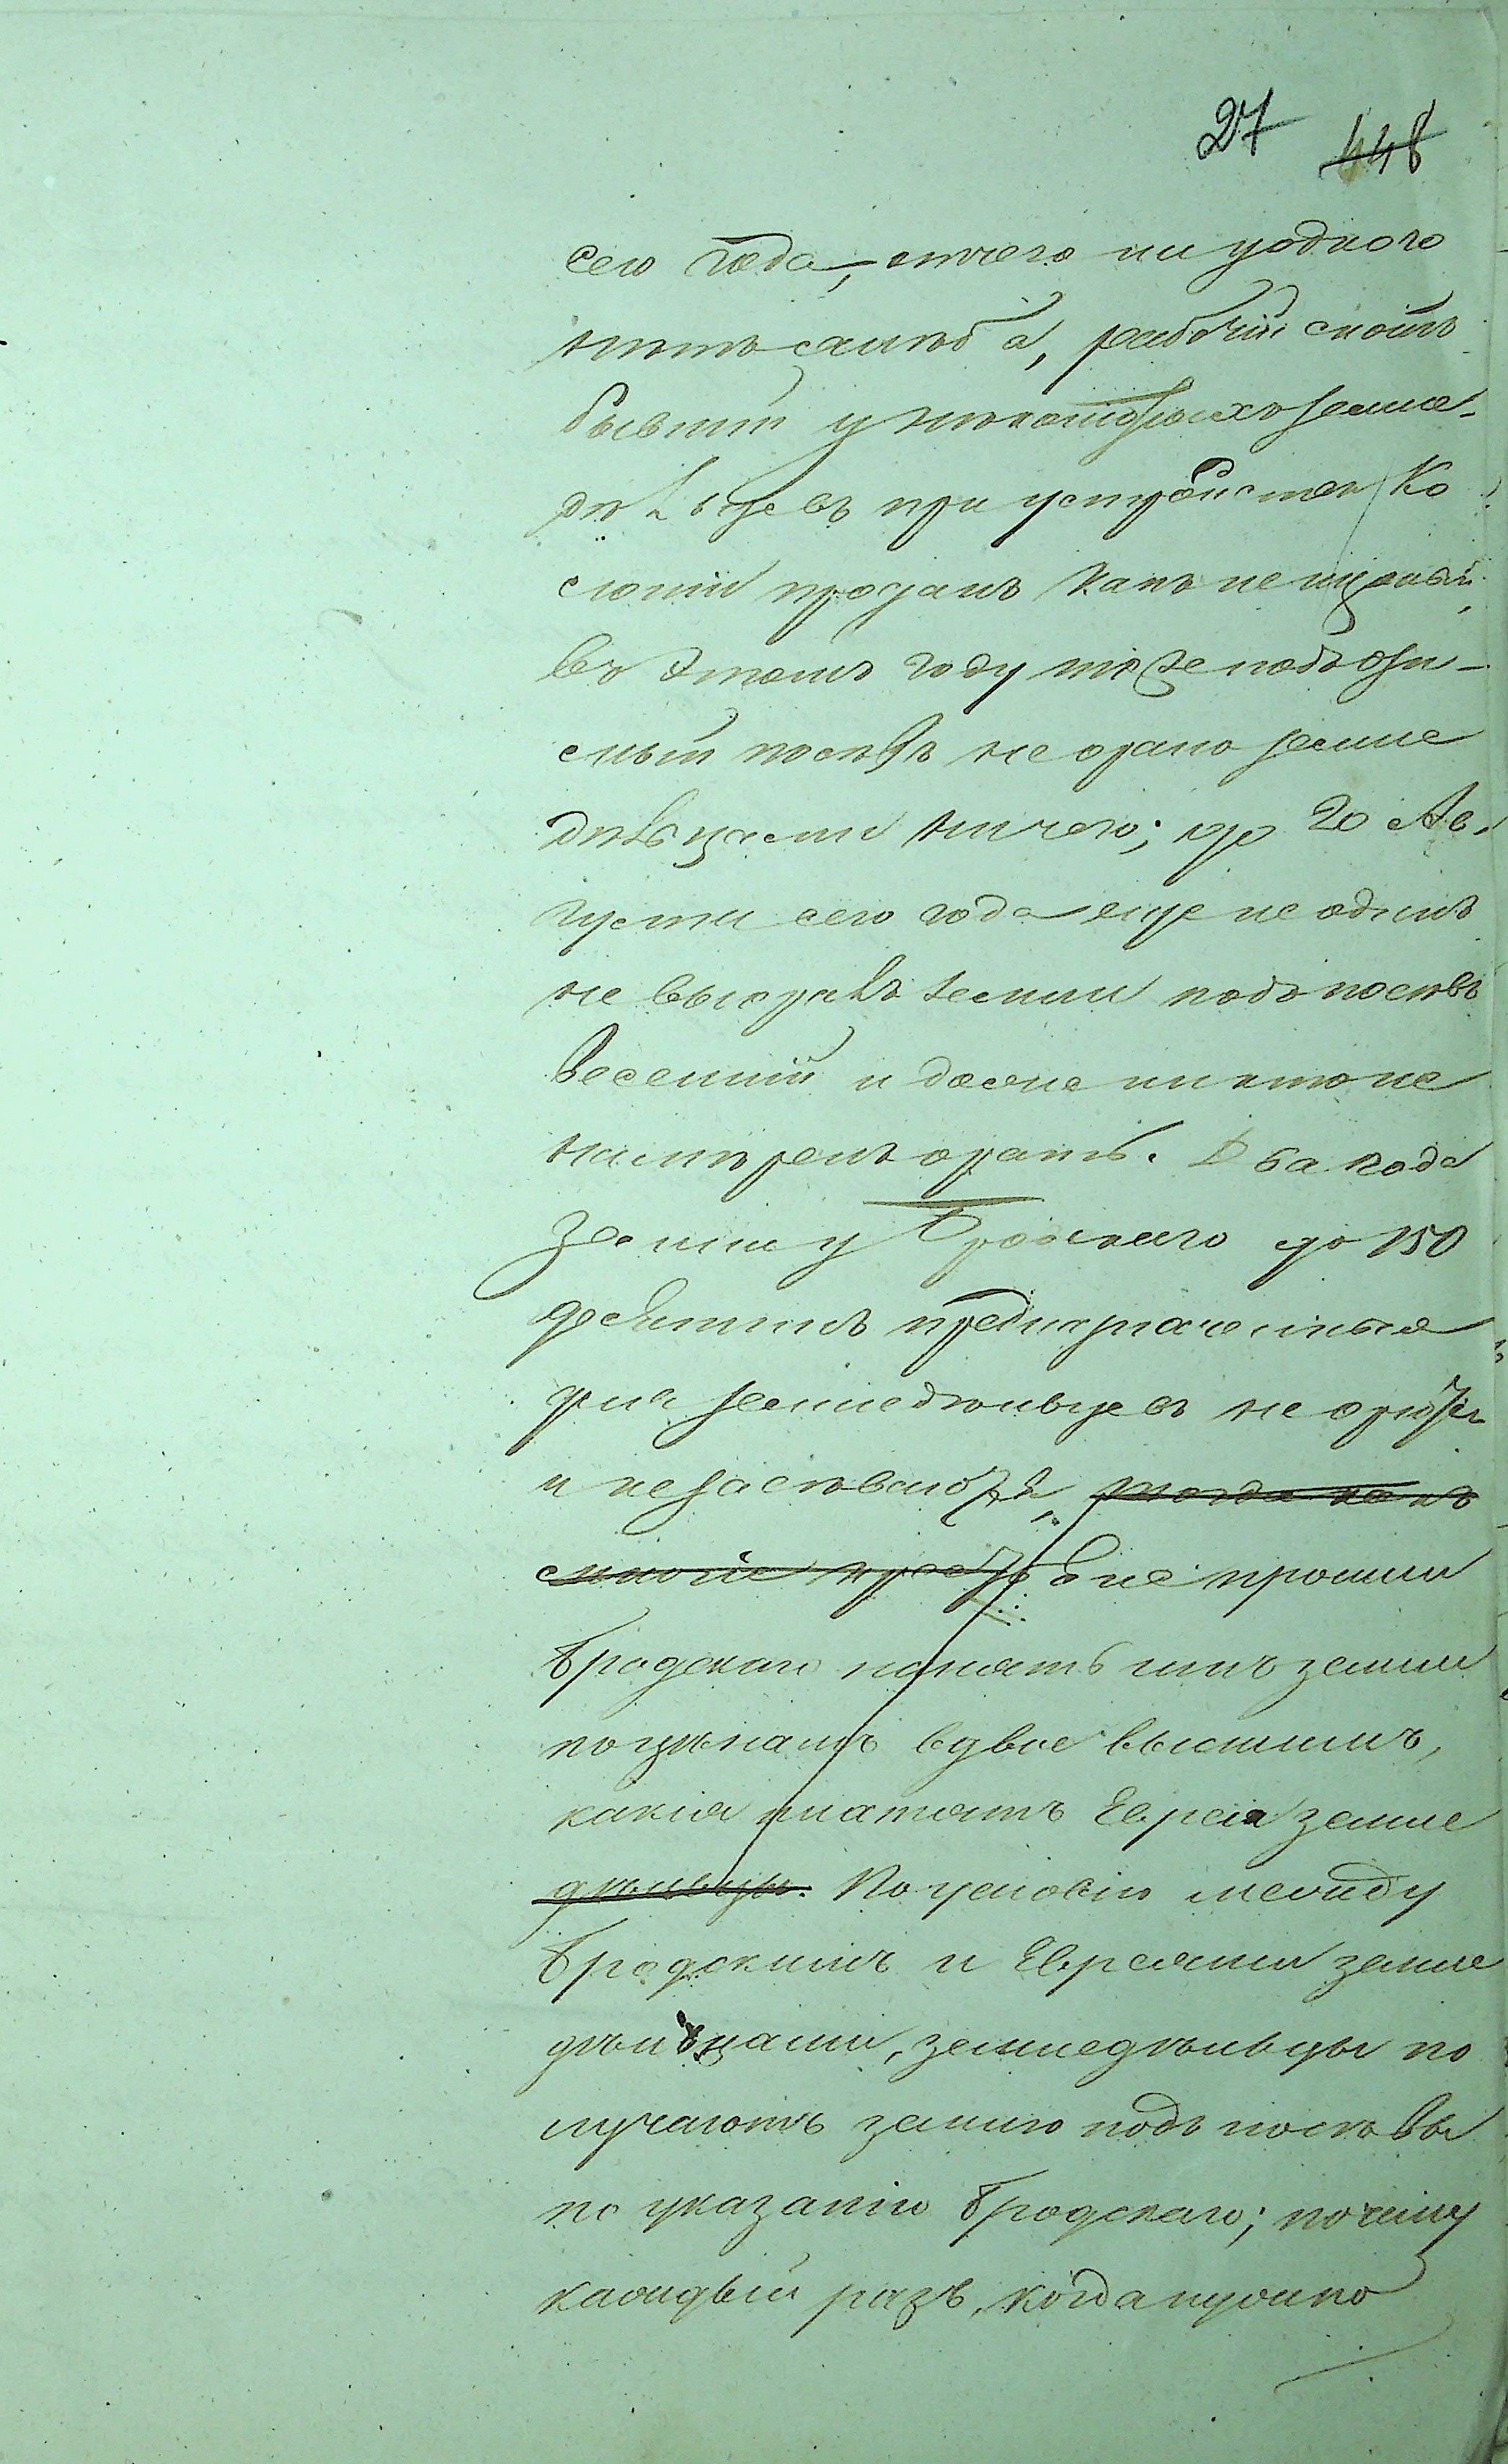 27 448
сего года, отчего ни у одного
нетъ хлѣба, рабочій скотъ
бывшій у некоторыхъ земле-
дѣльцевъ при устройствѣ Ко
лоніи проданъ какъ не нужный,
въ этомъ году тоже подъ ози-
мый посѣвъ не орано земле
дѣльцами ничего; до 20 Ав-
густа сего года еще не одинъ
не выоралъ земли подъ посѣвъ
весенній и даже никто не
намѣренъ орать. Два года
земли у Бродскаго до 150
десятинъ предназначенные
для земледѣльцевъ не орются
и не засѣваются,
не просили
Бродскаго нанять имъ земли
по цѣнамъ вдвое высшимъ,
какія платятъ Евреи земле
дѣльцы. По условію между
Бродскимъ и Евреями земле
дѣльцами, земледѣльцы по
лучаютъ землю подъ посѣвы
по указанію Бродскаго; почему
каждый разъ, когда нужно